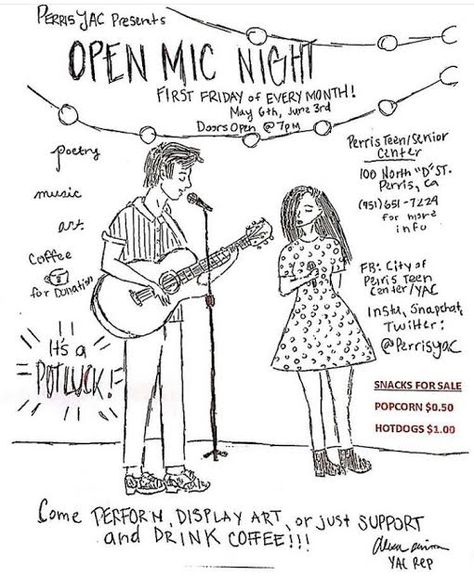 PERRIS YAC Presents
OPEN MIC NIGHT
FIRST FRIDAY of EVERY MONTH!
May 6th, June 3rd
Doors Open @ 7pm
poetry
music
art
Coffee
for Donation
It's a
POTLUCK!
Perris Teen/Senior
Center
100 North "D" ST.
Perris, CA
(951) 651-7224
for more
info
FB: City of
Perris Teen
Center/YAC
Insta, Snapchat,
Twitter:
@PerrisyaC
SNACKS FOR SALE
POPCORN $0.50
HOTDOGS $1.00
Come PERFORM, DISPLAY ART, or just SUPPORT
and DRINK COFFEE!!!
YAC REP